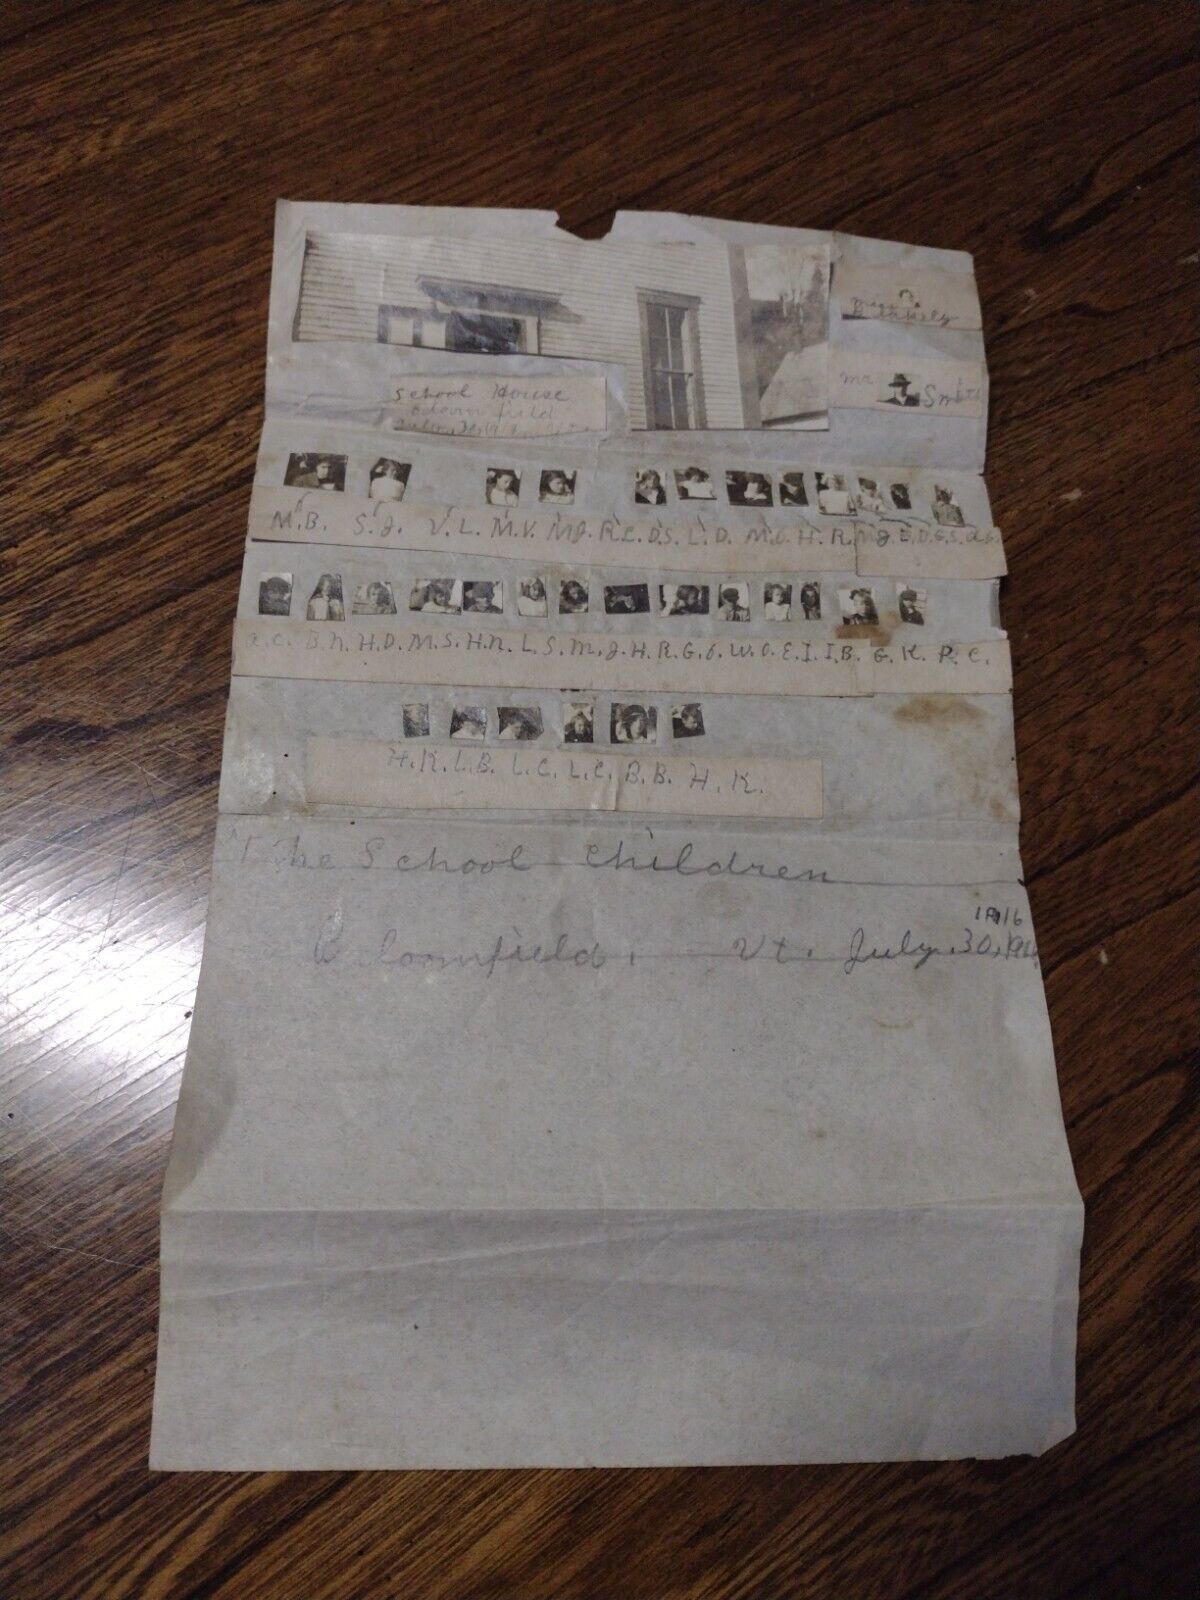 School House
field
Mr Smith
M.B. S.J. V.L. M.V. M.J. R.C. D.S. L.D. M.O. H.R. M.J. E.D. G.S. a.G.
a.C. B.N. H.D. M.S. H.N. L.S. M.J. H.R. G.G. W.O. E.I. I.B. G.K. P.C.
H.K. L.B. L.C. L.C. B.B. H.K.
The School children
1916
Bloomfield, Vt. July 30,